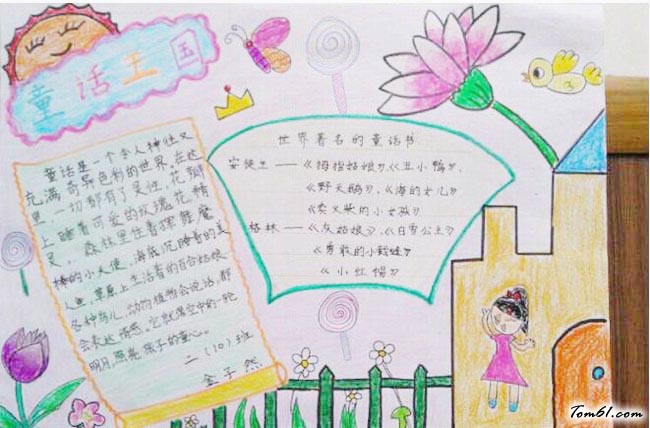 童话王国
童话是一个令人神往又
充满奇异色彩的世界。在这
里,一切都有了灵性,花瓣
上睡着可爱的玫瑰花精
灵,森林里住着挥舞魔
棒的小天使,海底沉睡着的美
人鱼,草原上生活着的百合姑娘
各种鸟儿,动物植物会说话,都
会表达情感。它就像空中的一轮
明月,照亮孩子的童心。
二(10)班
金子然
世界著名的童话书
安徒生——《拇指姑娘》、《丑小鸭》、
《野天鹅》、《海的女儿》
《卖火柴的小女孩》
格林——《灰姑娘》、《白雪公主》
《勇敢的小裁缝》
《小红帽》
Tom61.com